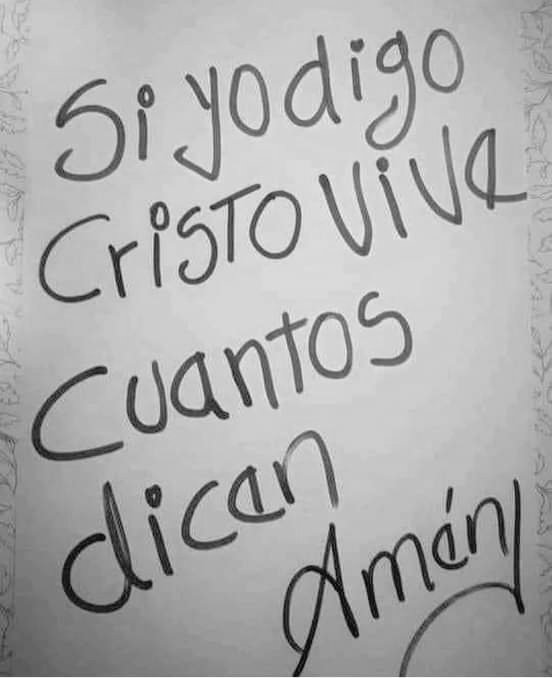 Si yo digo
Cristo vive
Cuantos
dicen
Amén